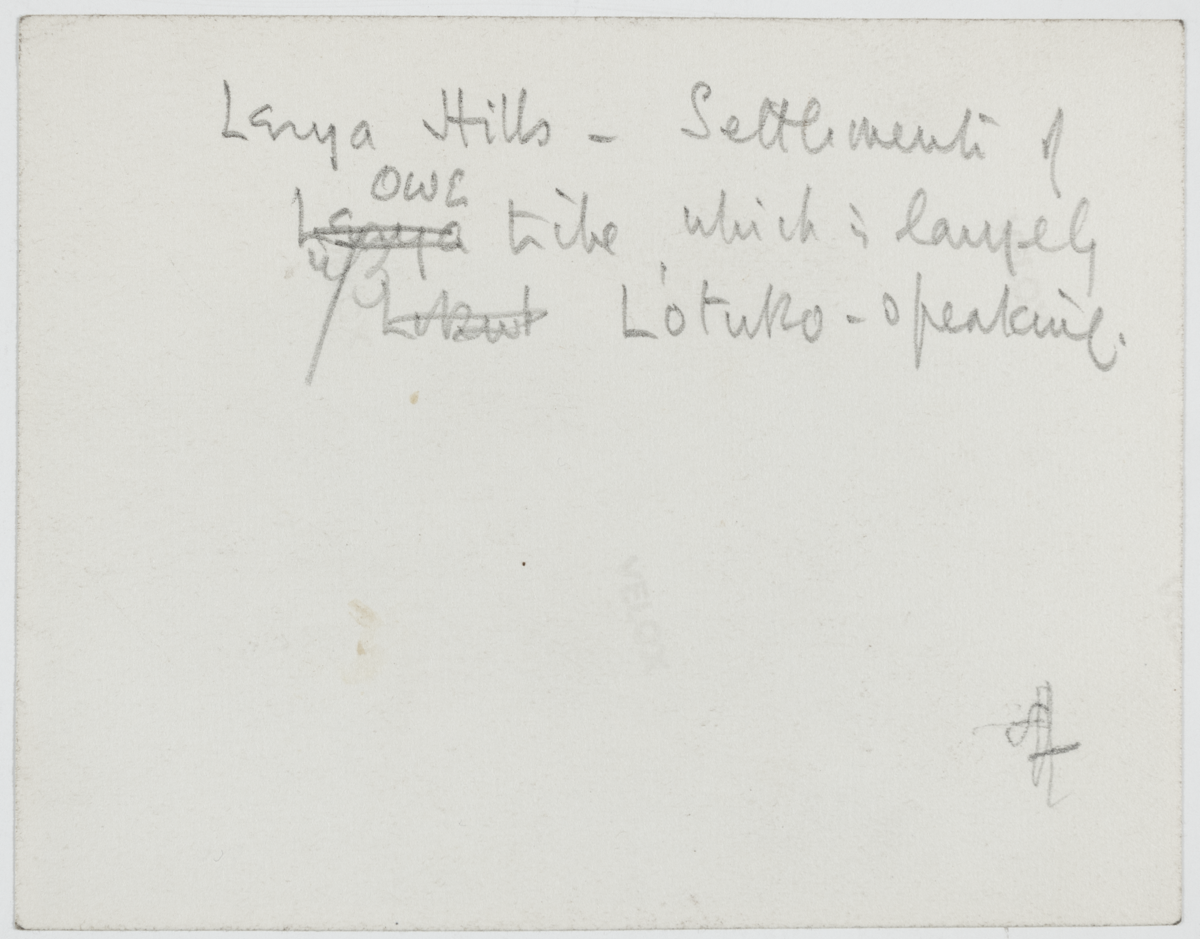 Lenya Hills - Settlements of
OWE
Lenya tribe which is largely
Lokut Lotuko-speaking.
VELOX